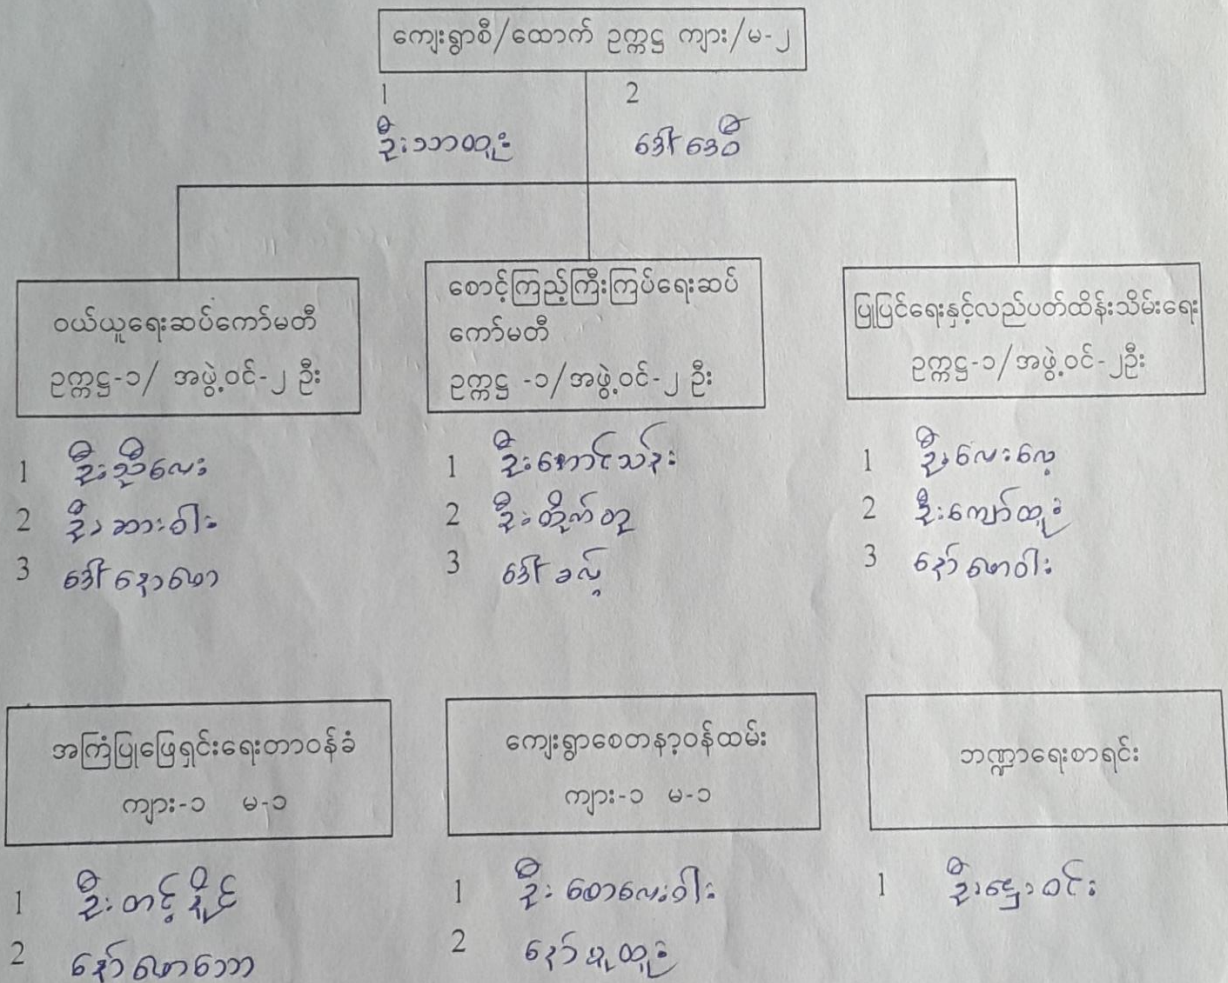 ကျေးရွာစီ/ထောက် ဥက္ကဋ္ဌ ကျား/မ-၂
1 ဦးသာထူး
2 ဒေါ်ဒေဝီ
ဝယ်ယူရေးဆပ်ကော်မတီ
ဥက္ကဋ္ဌ-၁/ အဖွဲ့ဝင်-၂ ဦး
1 ဦးညီလေး
2 ဦးဆားဝါး
3 ဒေါ်နောဖော
စောင့်ကြည့်ကြီးကြပ်ရေးဆပ်
ကော်မတီ
ဥက္ကဋ္ဌ -၁/အဖွဲ့ဝင်-၂ ဦး
1 ဦးအောင်သန်း
2 ဦးတိုက်တူ
3 ဒေါ်
ပြုပြင်ရေးနှင့်လည်ပတ်ထိန်းသိမ်းရေး
ဥက္ကဋ္ဌ-၁/အဖွဲ့ဝင်-၂ဦး
1 ဦးလေးလေ့
2 ဦးကျော်ထူး
3 နော်ဖောဝါး
အကြံပြုဖြေရှင်းရေးတာဝန်ခံ
ကျား-၁ မ-၁
1 ဦးတင့်နိုင်
2 နော်
ကျေးရွာစေတနာ့ဝန်ထမ်း
ကျား-၁ မ-၁
1 ဦးစောလေးဝါး
2 နော်မူထူး
ဘဏ္ဍာရေးစာရင်း
1 ဦးဌေးဝင်း